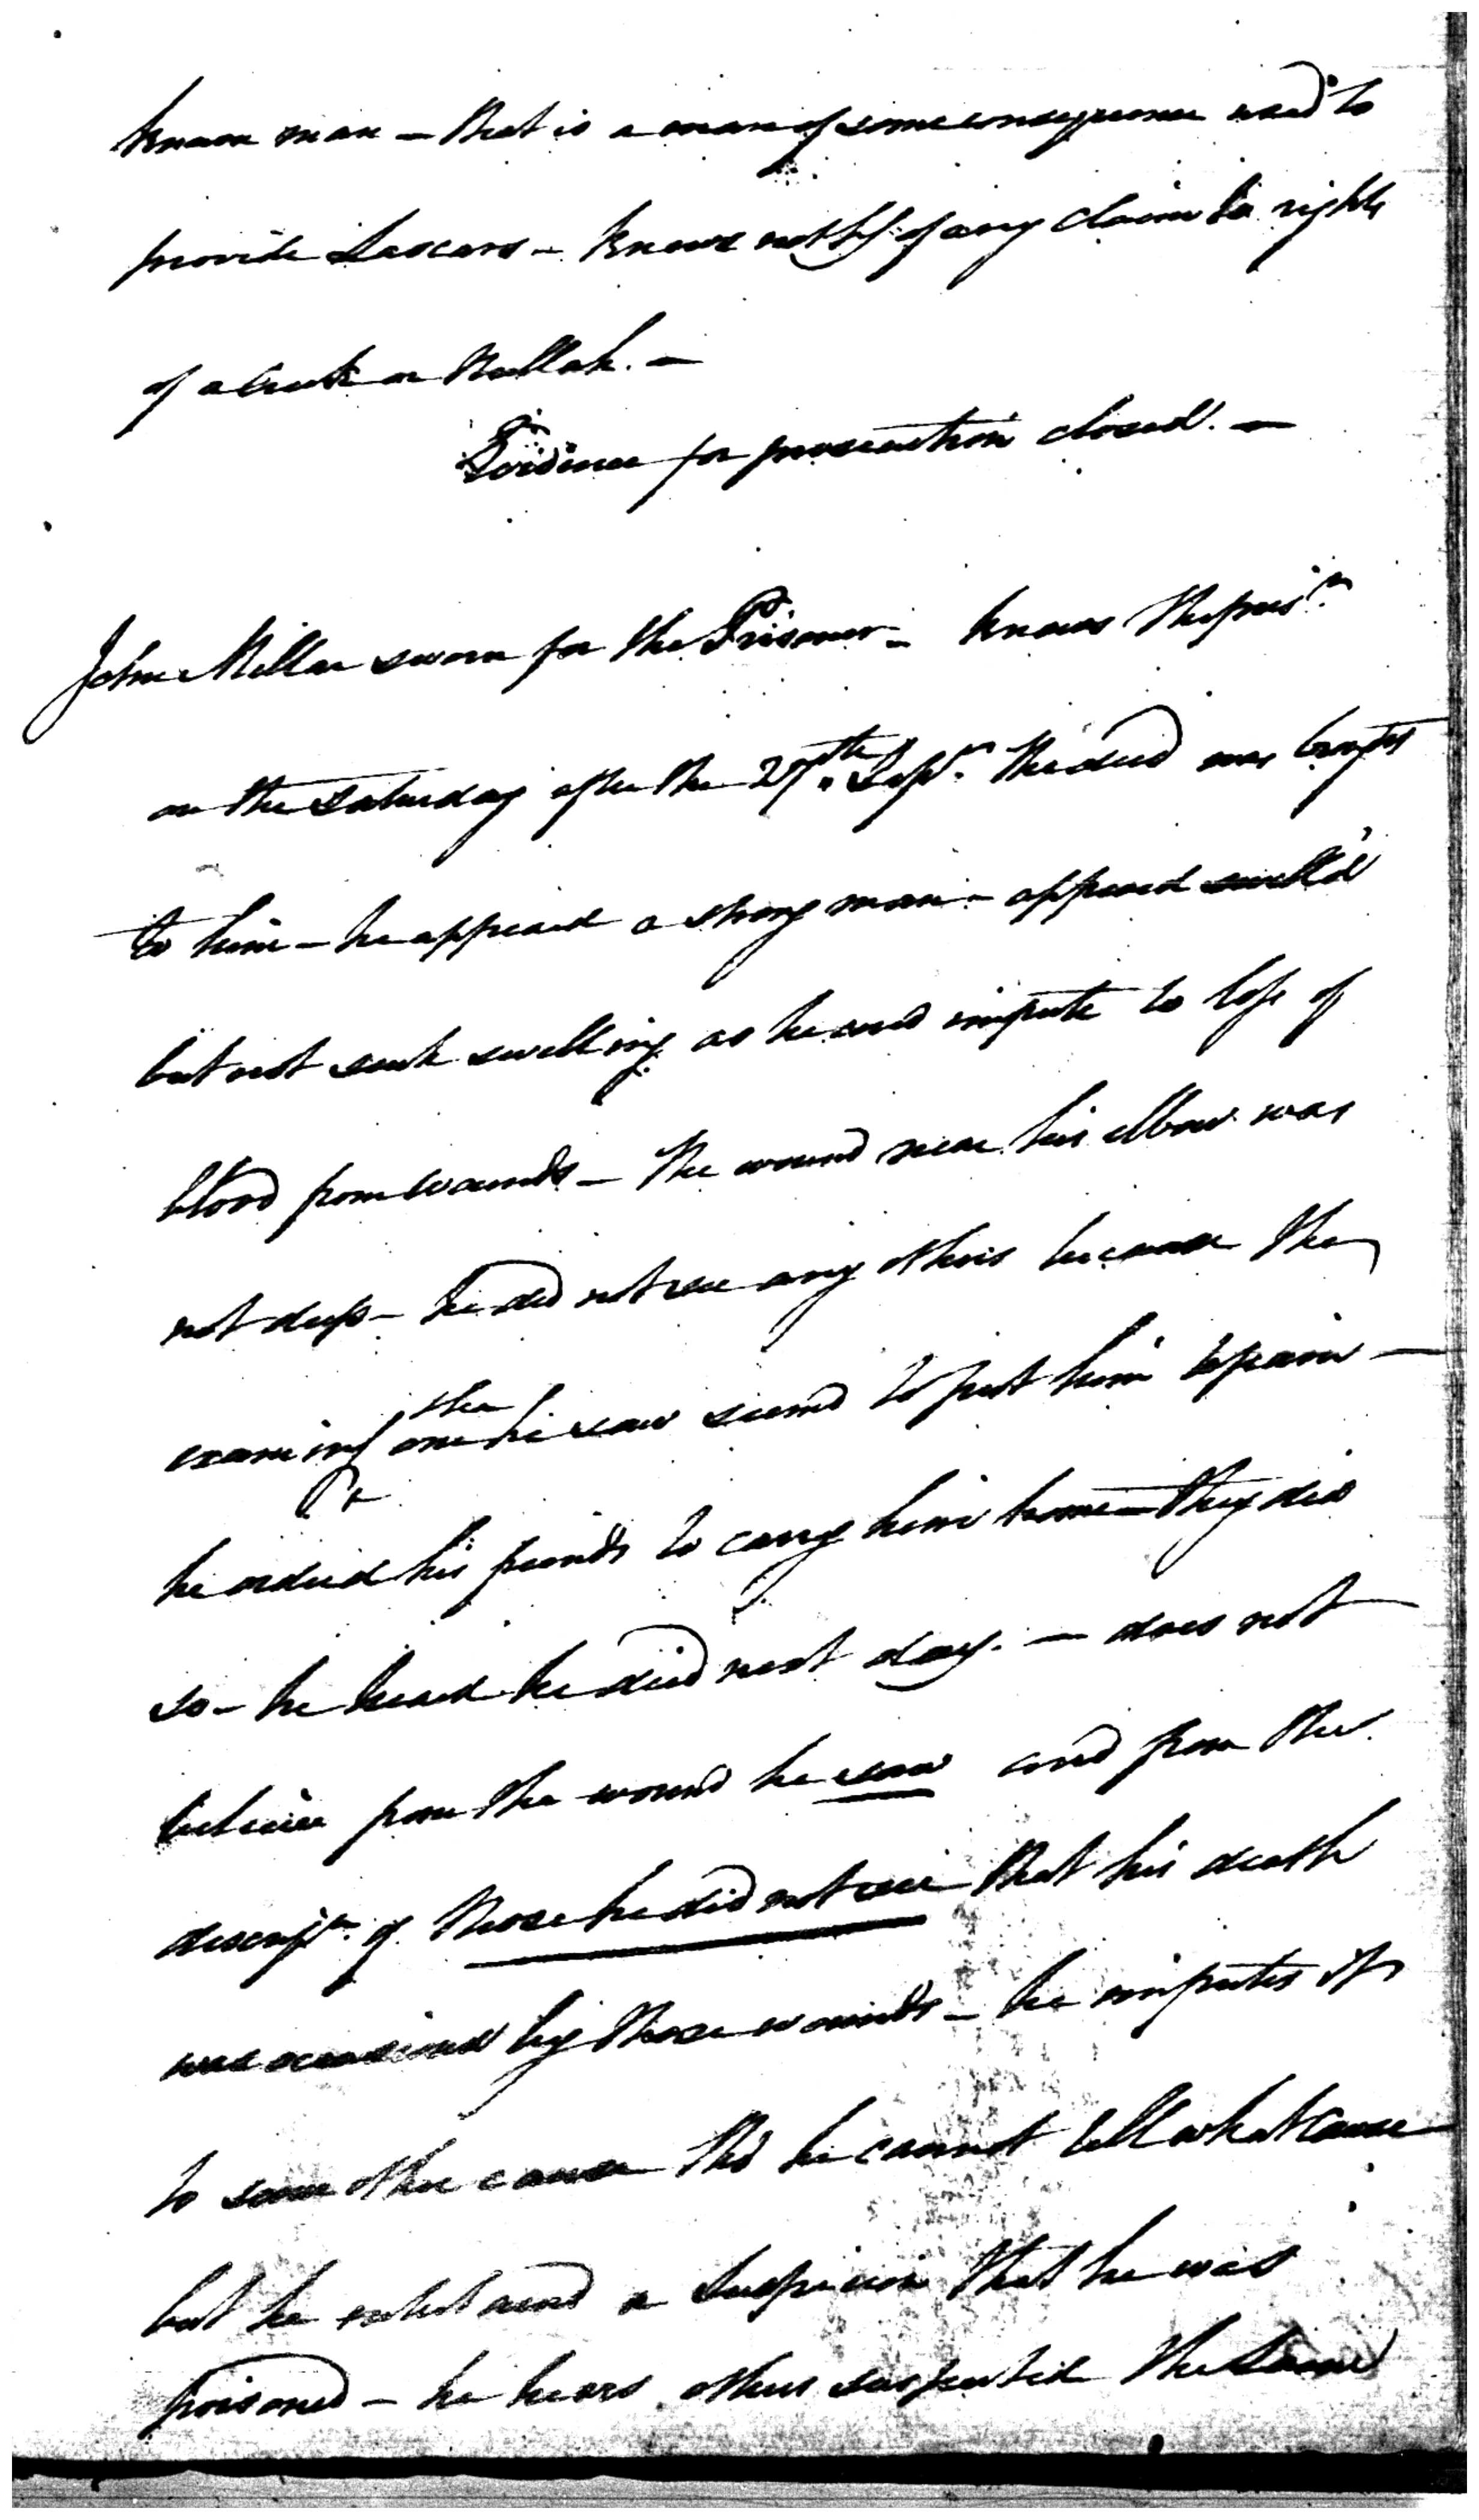 known man – that is a man of some consequence used to
provide Lascars – knows noth.g of any claim to rights
of a Creek or Nullah. –
Evidence for prosecution closed. –
John Millar sworn for the Prisoner – knows the pris.r
on the Saturday after the 27.th Sep.r the decd was brought
to him – he appeared a strong man – appeared swell'd
but not such swelling as he could impute to loss of
blood from wounds – The wound near his elbow was
not deep – he did not see any others because the
examin.g the one he saw seemed to put him to pain –
he ordered his friends to carry him home – they did
so – he heard he died next day. – does not
believe from the wound he saw and from the
descript.n of those he did not see that his death
was occasioned by those wounds – he imputes it
to some other cause tho' he cannot tell what cause
but he entertained a suspicion that he was
poisoned – he hears others suspected the same